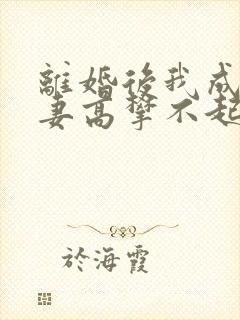 離婚後我成
妻高攀不起
於海霞